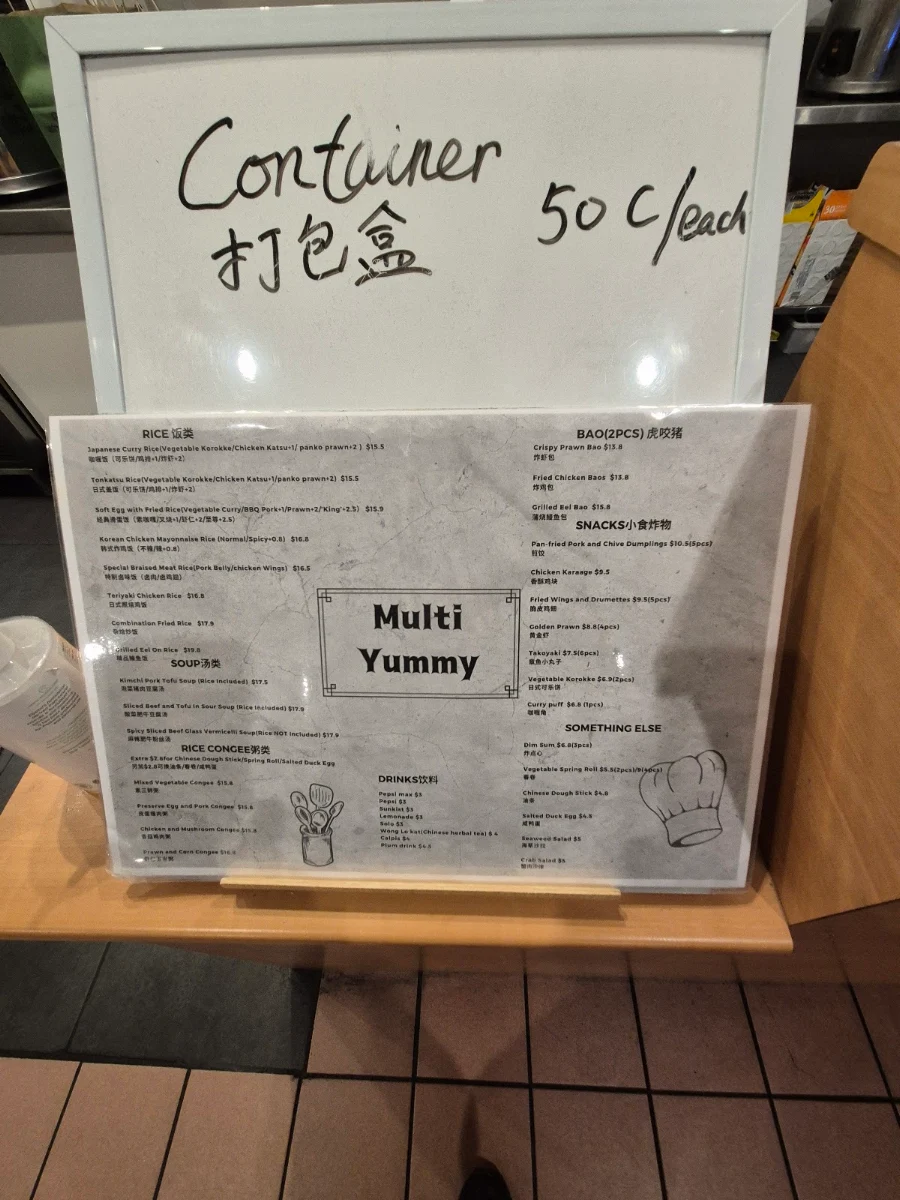 Container
打包盒
50 C/each
RICE 饭类
Japanese Curry Rice(Vegetable Korokke/Chicken Katsu+1/ panko prawn+2 ) $15.5
咖喱饭（可乐饼/鸡排+1/炸虾+2）
Tonkatsu Rice(Vegetable Korokke/Chicken Katsu+1/panko prawn+2) $15.5
Soft Egg with Fried Rice(Vegetable Curry/BBQ Pork+1/Prawn+2/'King'+2.5) $15.9
Korean Chicken Mayonnaise Rice (Normal/Spicy+0.8) $16.8
韩式炸鸡饭（不辣/辣+0.8）
Special Braised Meat Rice(Pork Belly/chicken Wings) $16.5
特制卤味饭（卤肉/卤鸡翅）
Teriyaki Chicken Rice $16.8
日式照烧鸡饭
Combination Fried Rice $17.9
杂烩炒饭
Grilled Eel On Rice $19.0
SOUP汤类
Kimchi Pork Tofu Soup (Rice Included) $17.5
泡菜猪肉豆腐汤
Sliced Beef and Tofu in Sour Soup (Rice Included) $17.9
酸菜肥牛豆腐汤
Spicy Sliced Beef Glass Vermicelli Soup(Rice NOT Included) $17.9
麻辣肥牛粉丝汤
RICE CONGEE粥类
Extra $2.8for Chinese Dough Stick/Spring Roll/Salted Duck Egg
另加$2.8可换油条/春卷/咸鸭蛋
Mixed Vegetable Congee $15.8
素三鲜粥
Preserve Egg and Pork Congee $15.8
皮蛋瘦肉粥
Chicken and Mushroom Congee $15.8
香菇鸡肉粥
Prawn and Corn Congee
Multi
Yummy
DRINKS饮料
Pepsi max $3
Pepsi $3
Sunkist $3
Lemonade $3
Solo $3
Wong Lo kat(Chinese herbal tea) $ 4
Calpis $4
Plum drink $4.5
BAO(2PCS) 虎咬猪
Crispy Prawn Bao $13.8
炸虾包
Fried Chicken Baos $13.8
炸鸡包
Grilled Eel Bao $15.8
蒲烧鳗鱼包
SNACKS小食炸物
Pan-fried Pork and Chive Dumplings $10.5(5pcs)
煎饺
Chicken Karaage $9.5
香酥鸡块
Fried Wings and Drumettes $9.5(5pcs)
脆皮鸡翅
Golden Prawn $8.8(4pcs)
黄金虾
Takoyaki $7.5(6pcs)
章鱼小丸子
Vegetable Korokke $6.9(2pcs)
日式可乐饼
Curry puff $6.8 (1pcs)
咖喱角
SOMETHING ELSE
Dim Sum $6.8(3pcs)
炸点心
Vegetable Spring Roll $5.5(2pcs)/8(4pcs)
春卷
Chinese Dough Stick $4.8
油条
Salted Duck Egg $4.5
咸鸭蛋
Seaweed Salad $5
海草沙拉
Crab Salad $5
蟹肉沙拉